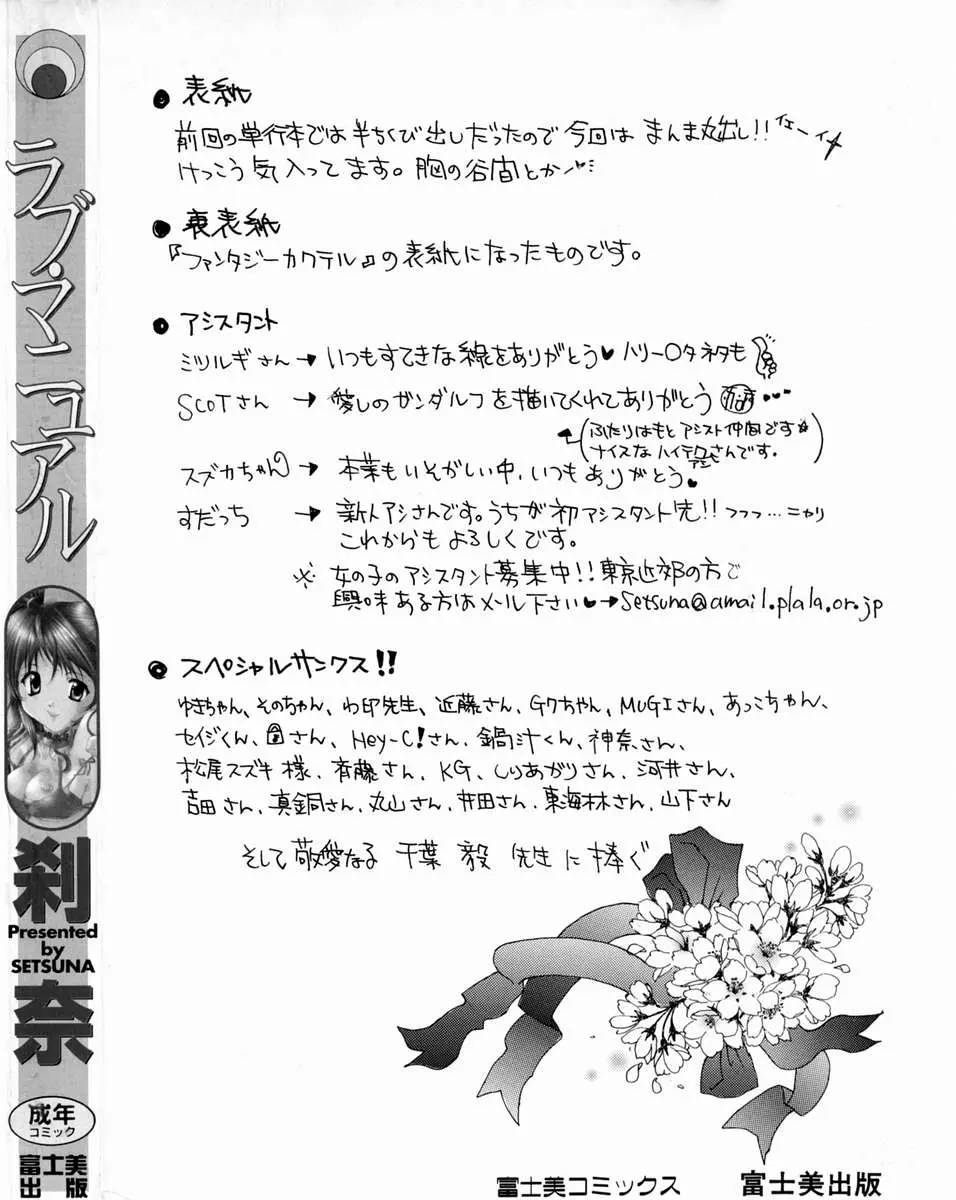 ラブ・マニュアル
刹奈
Presented
by
SETSUNA
成年
コミック
富士美
出版
● 表紙
前回の単行本では半ちくび出しだったので今回は まんま丸出し!! イエーイ
けっこう気入ってます。胸の谷間とか
● 裏表紙
『ファンタジーカクテル』の表紙になったものです。
● アシスタント
ミツルギさん → いつもすてきな線をありがとう♥ ハリー○タネタも
SCOTさん → 愛しのガンダルフを描いてくれてありがとう
(ふたりはもとアシスト仲間です☆
ナイスなハイテクアシさんです。)
スズカちゃん → 本業もいそがしい中、いつもありがとう♥
すだっち → 新人アシさんです。うちが初アシスタント先!! フフフ…ニヤリ
これからもよろしくです。
※ 女の子のアシスタント募集中!! 東京近郊の方で
興味ある方はメール下さい♥→Setsuna@amail.plala.or.jp
● スペシャルサンクス!!
ゆきちゃん、そのちゃん、わ印先生、近藤さん、Gクちゃん、MUGIさん、あっこちゃん、
セイジくん、さん、Hey-C!さん、鍋汁くん、神奈さん、
松尾スズキ様、斉藤さん、KG、しりあがりさん、河井さん、
吉田さん、真鍋さん、丸山さん、井田さん、東海林さん、山下さん
そして敬愛なる 千葉 毅 先生に捧ぐ
富士美コミックス 富士美出版